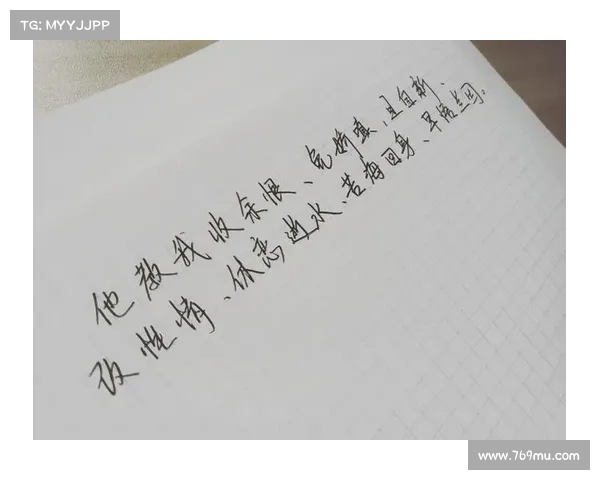 TG: MYYJJPP
他教我收余恨、免娇嗔、且自新、
改性情、休恋逝水、苦海回身、早悟兰因。
www.769mu.com